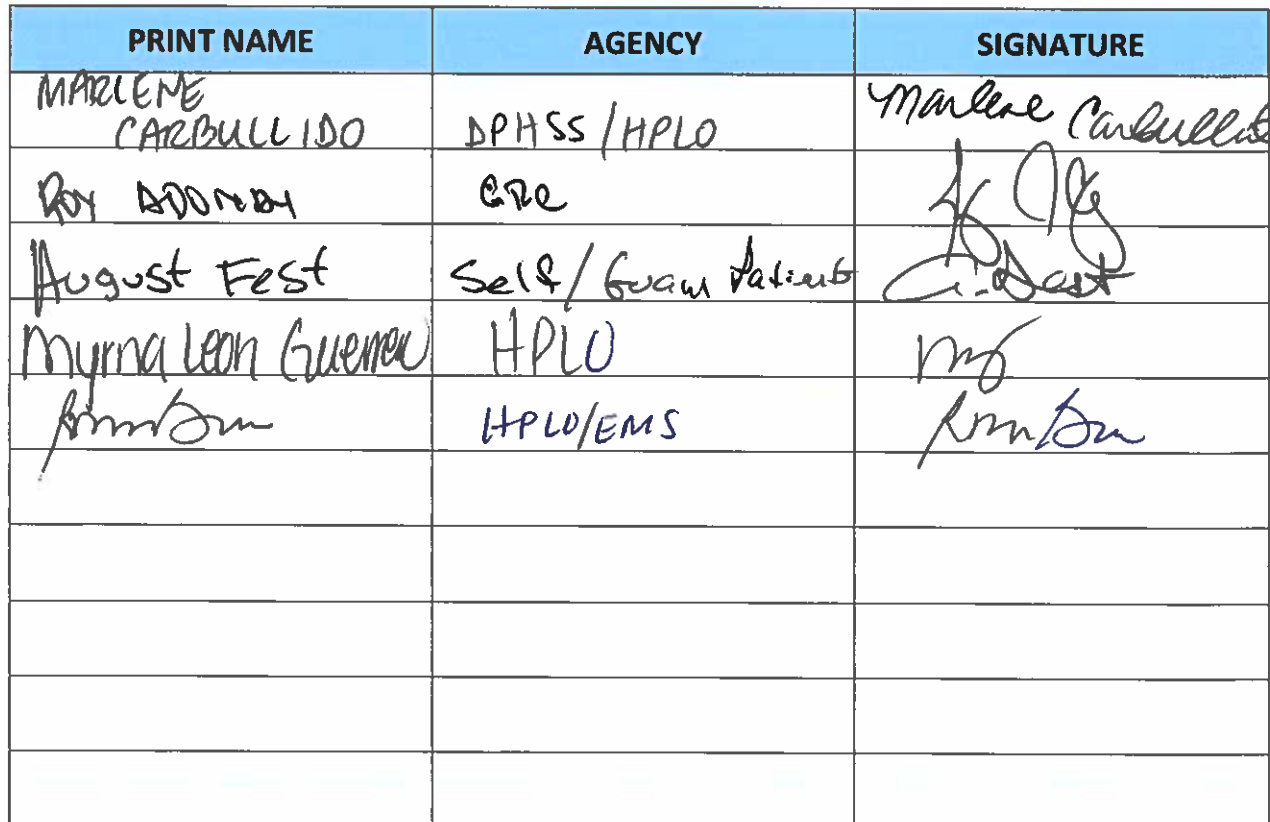 PRINT NAME AGENCY SIGNATURE
MARLENE
CARBULLIDO DPHSS/HPLO Marlene Carbullido
ROY ADONAY GRC
August Fest Self/Guam Patients A. Fest
Myrna Leon Guerrero HPLO
HPLO/EMS